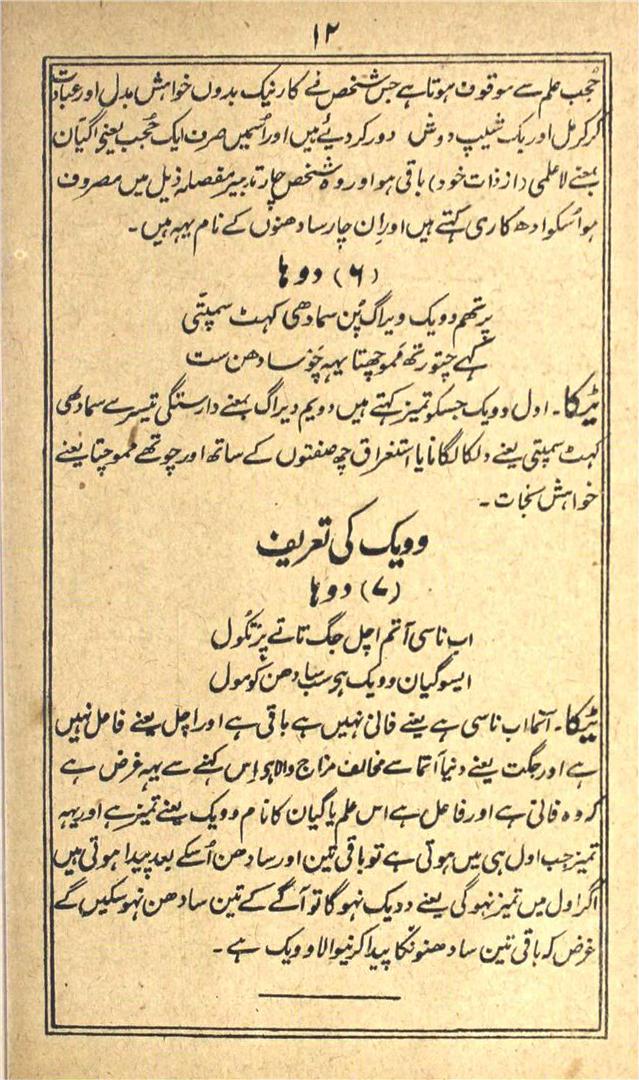 ۱۲
حُجب علم سے موقوف ہوتا ہے جس شخص نے کار نیک بدوں خواہش بدل اور عبادت
کر کر مل اور بک شیپ دوش دور کر دیئے ہیں اور اُسمیں صرف ایک حُجب یعنی اگیان
بمعنے لا علمی (از ذات خود) باقی ہو اور وہ شخص چار تدبیر مفصلہ ذیل میں مصروف
ہو اُسکو ادھکاری کہتے ہیں اور اِن چار سادھنوں کے نام یہہ ہیں۔
(۶) دوہا
پرتھم وویک ویراگ پُن سمادھی کہٹ سمپتّی
کہے چتورتھ مُموچھتا یہہ چَو سادھن ست
ٹیکا۔ اول وویک جسکو تمیز کہتے ہیں دویم ویراگ بمعنے وارستگی تیسرے سمادھی
کہٹ سمپتی یعنے دلکا لگانا یا استغراق چھ صفتوں کے ساتھ اور چوتھے مموچتا یعنے
خواہش نجات۔
وویک کی تعریف
(۷) دوہا
اب ناسی آتم اچل جگ تاتے پرتکُول
ایسو گیان وویک ہی سب سادھن کو مول
ٹیکا۔ آتما اب ناسی ہے یعنے فانی نہیں ہے باقی ہے اور اچل یعنے فاعل نہیں
ہے اور جگت یعنے دنیا آتما سے مخالف مزاج والا ہی اِس کہنے سے یہہ غرض ہے
کہ وہ فانی ہے اور فاعل ہے اس علم یا گیان کا نام وویک یعنے تمیز ہے اور یہہ
تمیز جب اول ہی میں ہوتی ہے تو باقی تین اور سادھن اُسکے بعد پیدا ہوتی ہیں
اگر اول میں تمیز نہوگی یعنے وویک نہوگا تو آگے کے تین سادھن نہو سکیں گے
غرض کہ باقی تین سادھنونکا پیدا کرنیوالا وویک ہے۔